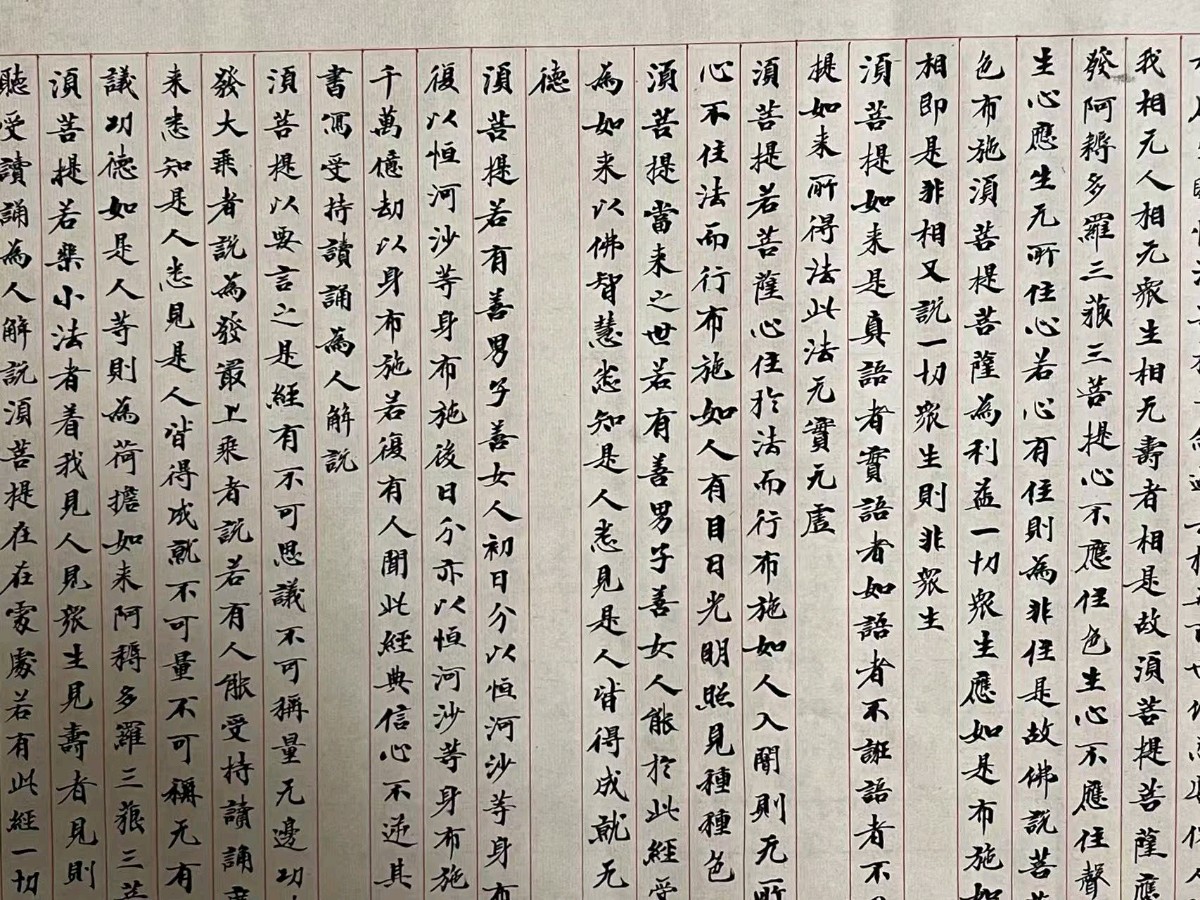 我相无人相无衆生相无壽者相是故須菩提菩薩應
發阿耨多羅三藐三菩提心不應住色生心不應住聲
生心應生无所住心若心有住則為非住是故佛說菩
色布施須菩提菩薩為利益一切衆生應如是布施如
相即是非相又説一切衆生則非衆生
須菩提如来是真語者實語者如語者不誑語者不
提如来所得法此法无實无虛
須菩提若菩薩心住於法而行布施如人入闇則无所
心不住法而行布施如人有目日光明照見種種色
須菩提當来之世若有善男子善女人能於此經受
為如来以佛智慧悉知是人悉見是人皆得成就无
德
須菩提若有善男子善女人初日分以恒河沙等身布
復以恒河沙等身布施後日分亦以恒河沙等身布施
千萬億劫以身布施若復有人聞此經典信心不逆其
書寫受持讀誦為人解説
須菩提以要言之是經有不可思議不可稱量无邊功
發大乘者説為發最上乘者説若有人能受持讀誦廣
来悉知是人悉見是人皆得成就不可量不可稱无有
議功德如是人等則為荷擔如来阿耨多羅三藐三菩
須菩提若樂小法者着我見人見衆生見壽者見則
聽受讀誦為人解説須菩提在在處處若有此經一切